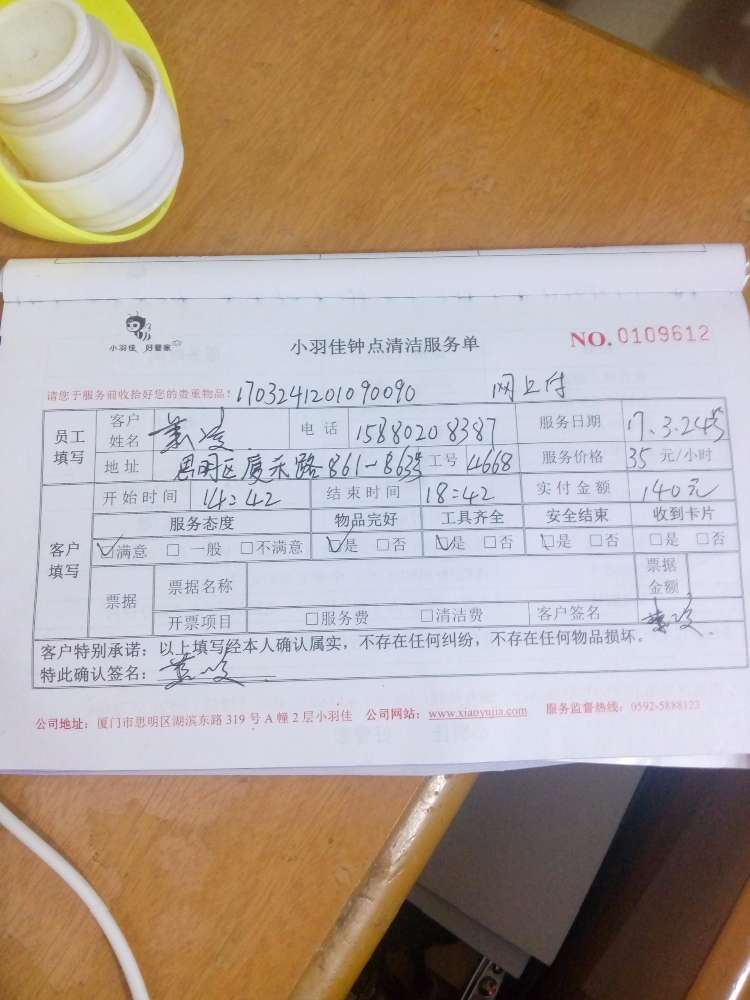 小羽佳 好管家
小羽佳钟点清洁服务单
NO. 0109612
请您于服务前收拾好您的贵重物品! 1703241201090090 网上付
员工填写 客户姓名 电话 15880208387 服务日期 17.3.24号
地址 思明区厦禾路861-863号 工号 4668 服务价格 35 元/小时
客户填写 开始时间 14:42 结束时间 18:42 实付金额 140元
服务态度 物品完好 工具齐全 安全结束 收到卡片
☑满意 □一般 □不满意 ☑是 □否 ☑是 □否 ☑是 □否 □是 □否
票据 票据名称 票据金额
开票项目 □服务费 □清洁费 客户签名
客户特别承诺：以上填写经本人确认属实，不存在任何纠纷，不存在任何物品损坏。
特此确认签名：
公司地址：厦门市思明区湖滨东路 319 号 A 幢 2 层小羽佳 公司网站：www.xiaoyujia.com 服务监督热线：0592-5888123